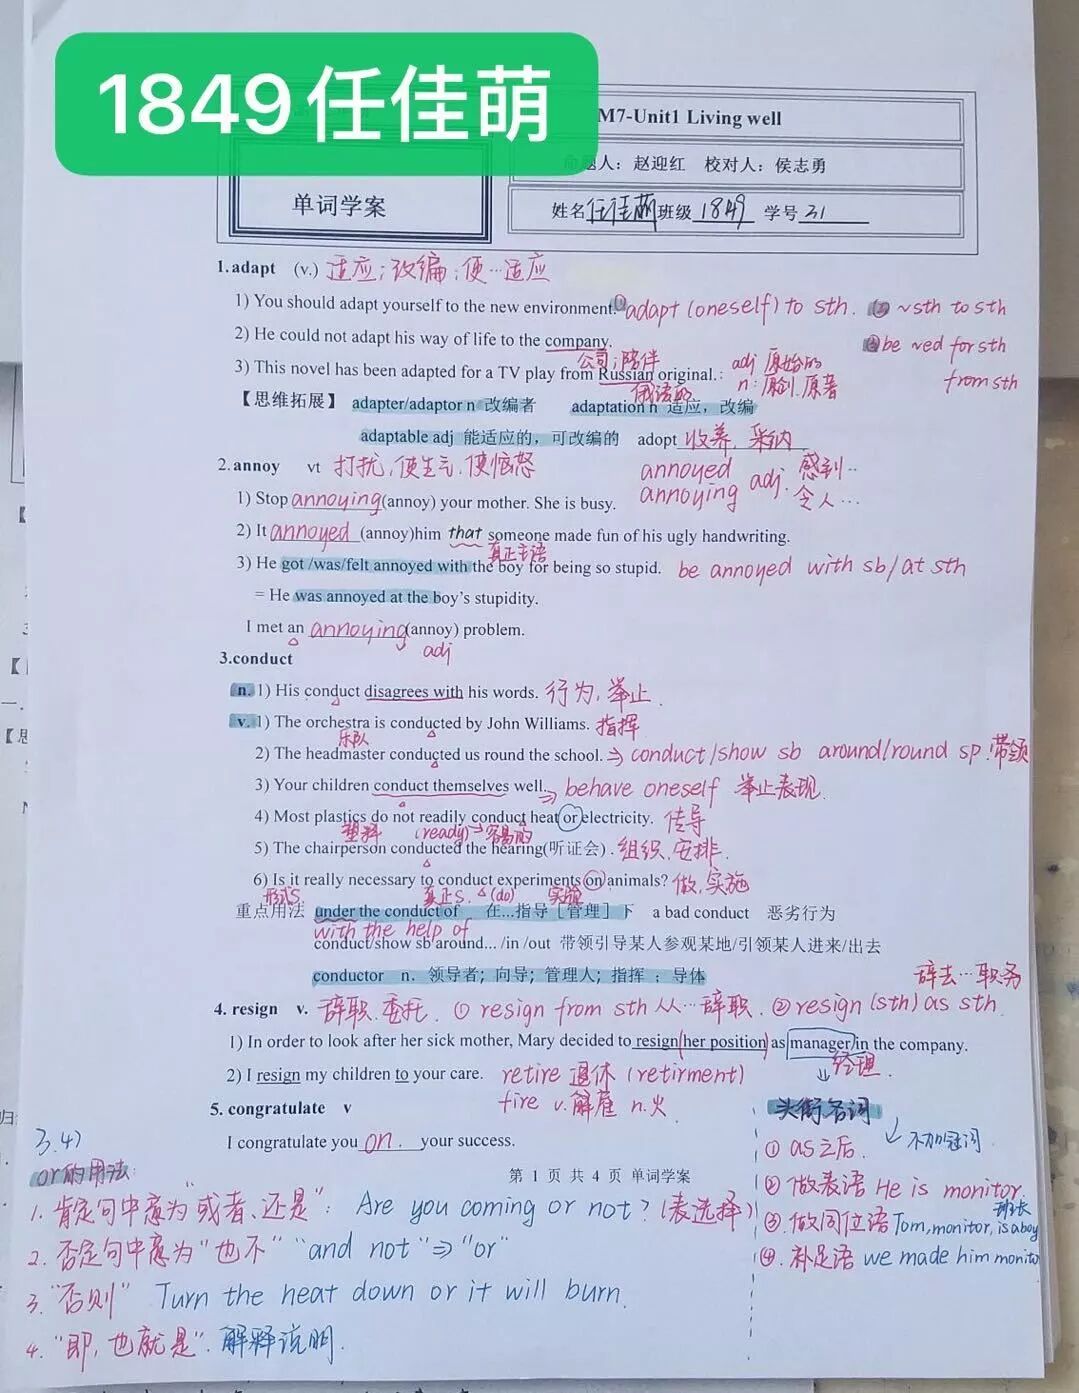 1849任佳萌
M7-Unit1 Living well
题人：赵迎红 校对人：侯志勇
单词学案
姓名任佳萌班级1849 学号31
1.adapt (v.) 适应；改编；使…适应
1) You should adapt yourself to the new environment.①adapt (oneself) to sth. ②~sth to sth
2) He could not adapt his way of life to the company. ③be ~ed for sth
公司；陪伴 adj 原始的
3) This novel has been adapted for a TV play from Russian original.: n:原剧.原著 from sth
俄语的
【思维拓展】 adapter/adaptor n 改编者 adaptation n 适应，改编
adaptable adj 能适应的，可改编的 adopt 收养，采纳
2.annoy vt 打扰，使生气，使恼怒 annoyed adj. 感到…
annoying 令人…
1) Stop annoying(annoy) your mother. She is busy.
2) It annoyed (annoy)him that someone made fun of his ugly handwriting.
真正主语
3) He got /was/felt annoyed with the boy for being so stupid. be annoyed with sb/at sth
= He was annoyed at the boy's stupidity.
I met an annoying(annoy) problem.
adj
3.conduct
n. 1) His conduct disagrees with his words. 行为，举止.
v. 1) The orchestra is conducted by John Williams. 指挥
乐队
2) The headmaster conducted us round the school.⇒ conduct/show sb around/round sp.带领
3) Your children conduct themselves well.⇒ behave oneself 举止表现.
4) Most plastics do not readily conduct heat or electricity. 传导
塑料 (ready)→容易的
5) The chairperson conducted the hearing(听证会) . 组织，安排.
6) Is it really necessary to conduct experiments on animals? 做，实施
形式S. 真正S. (do) 实验
重点用法 under the conduct of 在...指导［管理］下 a bad conduct 恶劣行为
with the help of
conduct/show sb around... /in /out 带领引导某人参观某地/引领某人进来/出去
conductor n. 领导者；向导；管理人；指挥 ；导体
辞去…职务
4. resign v. 辞职.委托. ① resign from sth 从…辞职. ② resign (sth) as sth.
1) In order to look after her sick mother, Mary decided to resign(her position) as manager in the company.
经理.
2) I resign my children to your care. retire 退休 (retirment)
fire v.解雇 n.火.
5. congratulate v
头衔名词
I congratulate you on. your success.
不加冠词
第 1 页 共 4 页 单词学案
① as之后.
② 做表语 He is monitor.
班长
③.做同位语 Tom, monitor, is a boy
④. 补足语 we made him monitor
3.4)
or的用法:
1. 肯定句中意为"或者、还是"： Are you coming or not? (表选择)
2. 否定句中意为"也不" "and not"⇒"or"
3. "否则" Turn the heat down or it will burn.
4. "即，也就是". 解释说明.